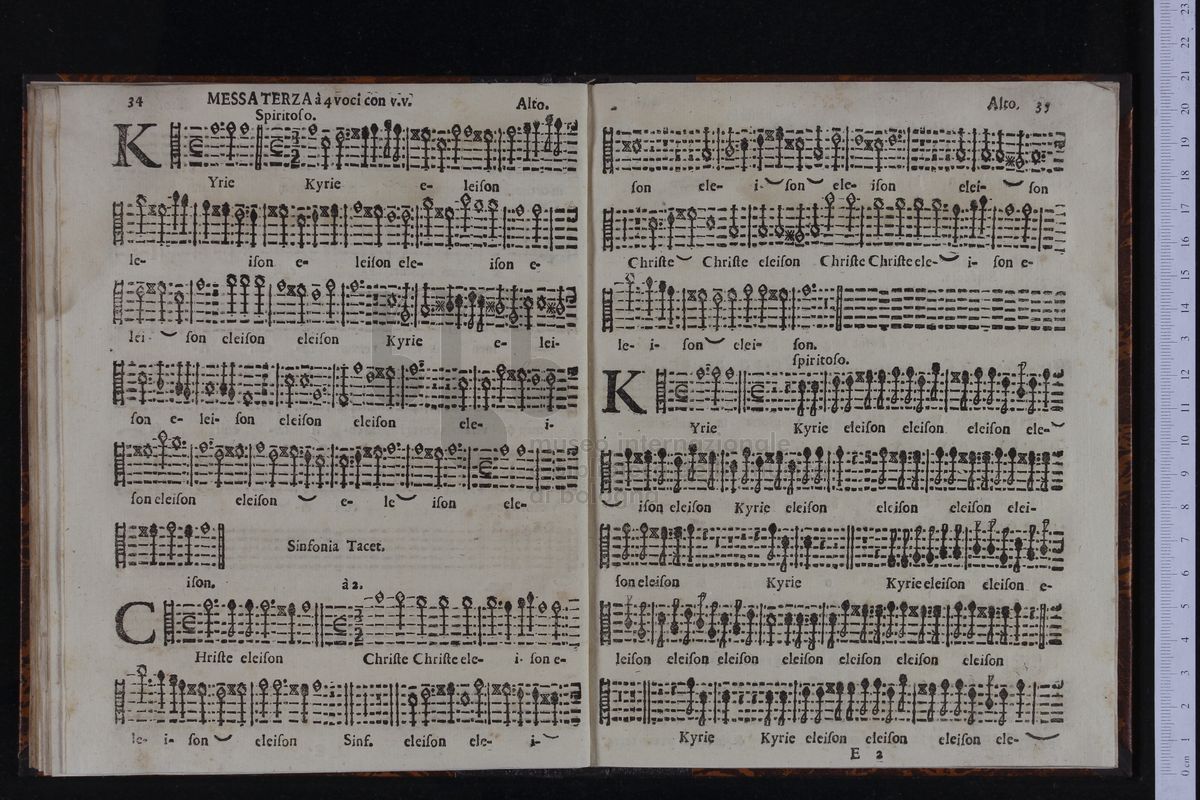 34 MESSA TERZA à 4 voci con v.v. Alto.
Spiritoso.
K
Yrie Kyrie e- leison
le- ison e- leison ele- ison e-
lei- son eleison eleison Kyrie e- lei-
son e- lei- son eleison eleison ele- i-
son eleison eleison e- le ison ele-
ison.
Sinfonia Tacet.
à 2.
C
Hriste eleison Christe Christe ele- i- son e-
le- i- son eleison Sinf. eleison ele- i-
Alto. 35
son ele- i- son ele- ison elei- son
Christe Christe eleison Christe Christe ele- i- son e-
le- i- son elei- son.
spiritoso.
K
Yrie Kyrie eleison eleison eleison ele-
ison eleison Kyrie eleison eleison eleison elei-
son eleison Kyrie Kyrie eleison eleison e-
leison eleison eleison eleison eleison eleison eleison
Kyrie Kyrie eleison eleison eleison ele-
E 2
museo internazionale
di bologna